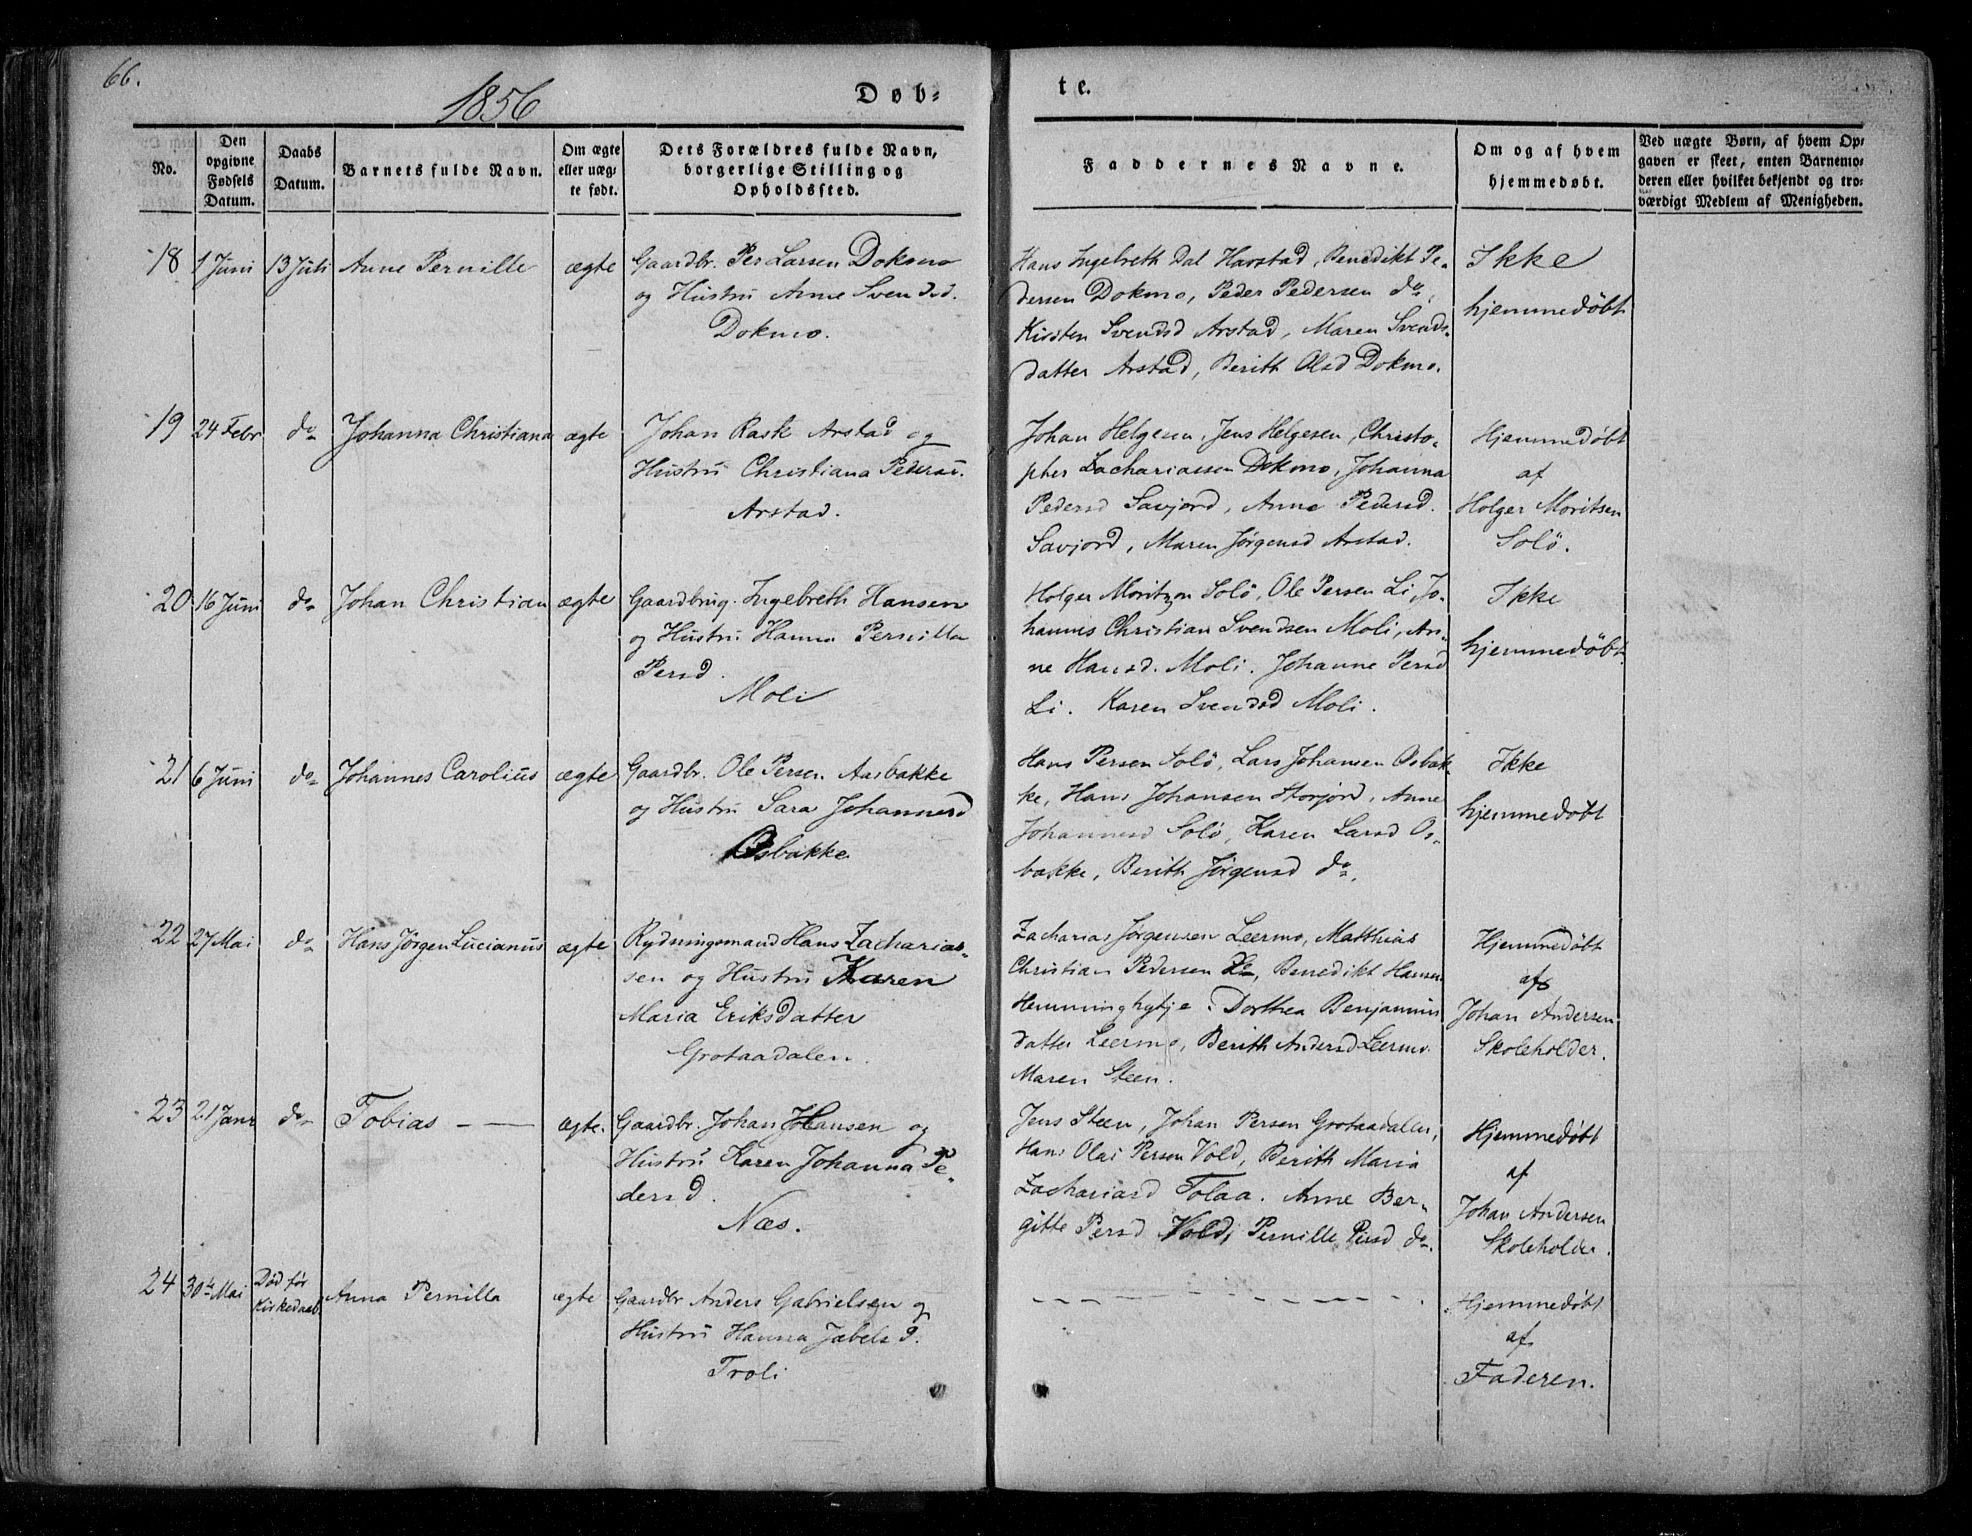 66.
1856
Døb-
te.
No.
Den opgivne Fødsels Datum.
Daabs Datum.
Barnets fulde Navn.
Om ægte eller uægte født.
Dets Forældres fulde Navn, borgerlige Stilling og Opholdssted.
Faddernes Navne.
Om og af hvem hjemmedøbt.
Ved uægte Børn, af hvem Opgaven er skeet, enten Barnemoderen eller hvilket bekjendt og troværdigt Medlem af Menigheden.
18 1 Juni 13 Juli Anne Pernille ægte
Gaardbr. Per Larsen Dokmo
og Hustru Anne Svendsd.
Dokmo.
Hans Ingebreth Dal Harstad, Benedikt Pe-
dersen Dokmo, Peder Pedersen do,
Kirsten Svendsd Arstad, Maren Svends-
datter Arstad, Berith Olsd Dokmo.
Ikke
hjemmedøbt
19 24 Febr do Johanna Christiana ægte
Johan Rask Arstad og
Hustru Christiana Pedersd.
Arstad.
Johan Helgesen, Jens Helgesen, Christo-
pher Zachariassen Dokmo, Johanna
Pedersd Savjord, Anne Pedersd.
Savjord, Maren Jörgensd Arstad.
Hjemmedøbt
af
Holger Moritsen
Solö.
20 16 Juni do Johan Christian ægte
Gaardbrug. Ingebreth Hansen
og Hustru Hanna Pernilla
Persd.
Moli
Holger Moritzen Solö, Ole Persen Li, Jo-
hannes Christian Svendsen Moli, An-
ne Hansd. Moli. Johanne Persd
Li. Karen Svendsd Moli.
Ikke
hjemmedøbt
21 6 Juni do Johannes Carolius ægte
Gaardbr. Ole Persen Aasbakke
og Hustru Sara Johannesd
Osbakke
Hans Persen Solö, Lars Johansen Osbak-
ke, Hans Johansen Storjord, Anne
Johannesd Solö, Karen Larsd Os-
bakke, Berith Jörgensd do.
Ikke
hjemmedøbt
22 27 Mai do Hans Jörgen Lucianus ægte
Rydningsmand Hans Zacharias-
sen og Hustru Karen
Maria Eriksdatter
Grotaadalen
Zacharias Jörgensen Leermo, Matthias
Christian Pedersen do, Benedikt Hansen
Hemminghytje. Dorthea Benjamins
datter Leermo, Berith Andersd Leermo.
Maren Steen.
Hjemmedøbt
af
Johan Andersen
Skoleholder.
23 21 Janr do Tobias ægte.
Gaardbr. Johan Hansen og
Hustru Karen Johanna Pe-
dersd.
Næs.
Jens Steen, Johan Persen Grotaadalen,
Hans Olai Persen Vold, Berith Maria
Zachariasd Tolaa. Anne Ber-
gitte Persd Vold, Pernille Persd do.
Hjemmedøbt
af
Johan Andersen
Skoleholder.
24 30te Mai Død før Kirkedaab Anna Pernilla ægte
Gaardbr Anders Gabrielsen og
Hustru Hanna Jabelsd.
Troli
Hjemmedøbt
af
Faderen.